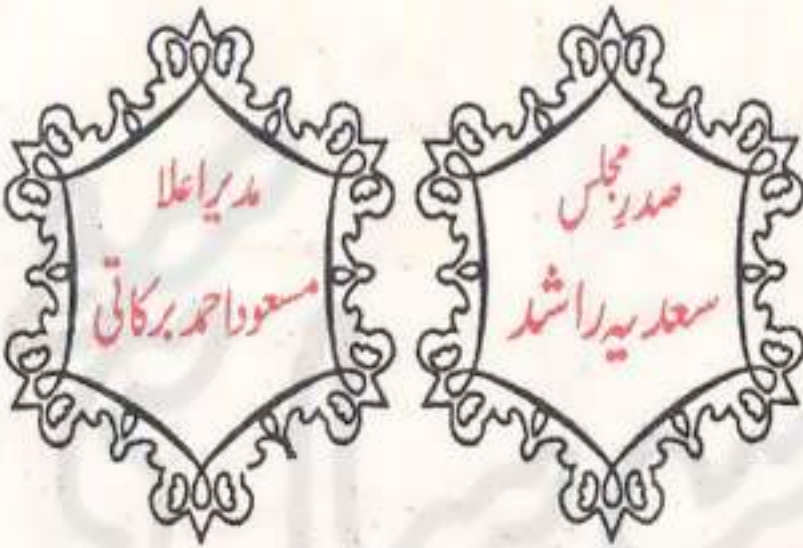 صدرِ مجلس
سعدیہ راشد
مدیر اعلا
مسعود احمد برکاتی